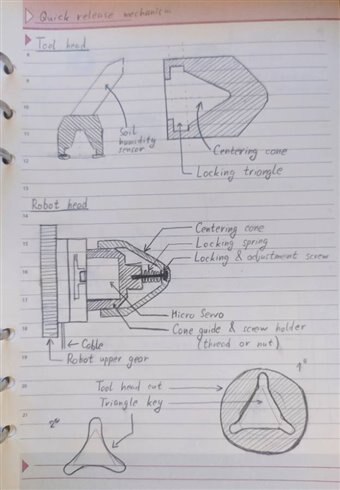 Quick release mechanism
Tool head
Soil
humidity
sensor
Centering cone
Locking triangle
Robot head
Centering cone
Locking spring
Locking & adjustment screw
Micro Servo
Cone guide & screw holder
(thread or nut)
Cable
Robot upper gear
Tool head cut
Triangle key
8
9
10
11
12
13
14
15
16
17
18
19
20
21